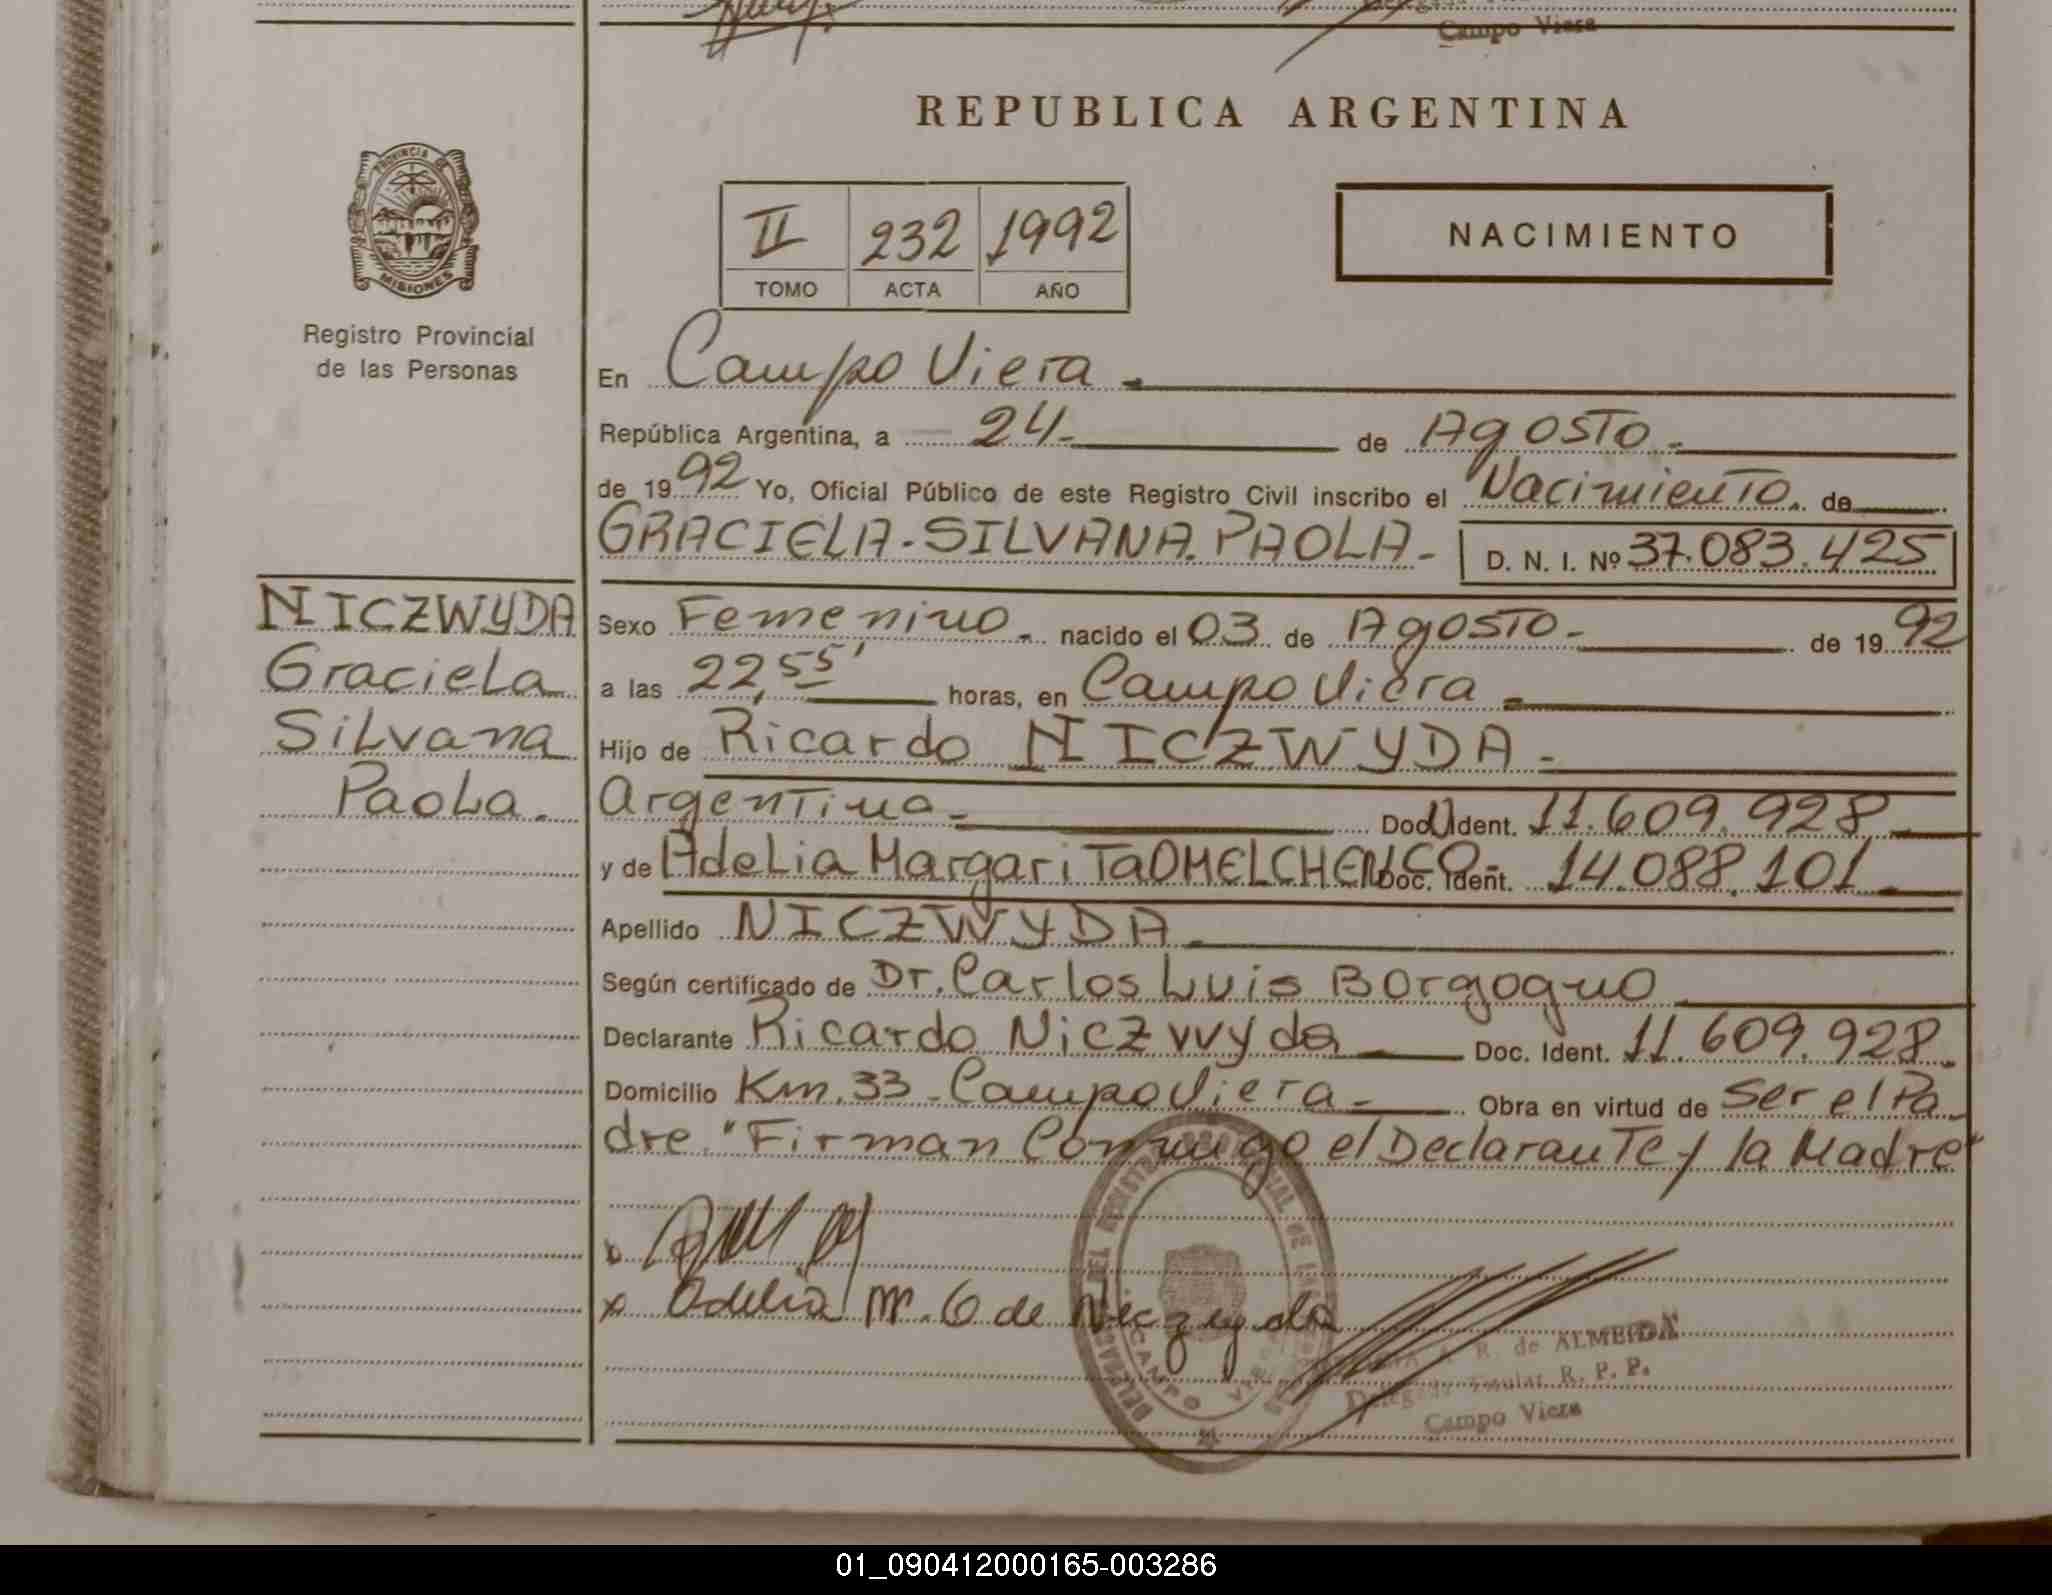 Campo Viera
REPUBLICA ARGENTINA
PROVINCIA DE
MISIONES
II 232 1992
TOMO ACTA AÑO
NACIMIENTO
Registro Provincial
de las Personas
En Campo Viera
República Argentina, a 24 de Agosto
de 1992 Yo, Oficial Público de este Registro Civil inscribo el Nacimiento. de
GRACIELA-SILVANA.PAOLA- D. N. I. Nº 37.083.425
NICZWYDA
Graciela
Silvana
Paola.
Sexo Femenino. nacido el 03 de Agosto de 1992
a las 22,55' horas, en Campo Viera
Hijo de Ricardo NICZWYDA
Argentina Doc. Ident. 11.609.928
y de Adelia Margarita OMELCHENCO- Doc. Ident. 14.088.101
Apellido NICZWYDA
Según certificado de Dr. Carlos Luis Borgogno
Declarante Ricardo Niczwyda Doc. Ident. 11.609.928
Domicilio Km. 33 - Campo Viera Obra en virtud de Ser el Pa
dre. "Firman Conmigo el Declarante y la Madre"
x Adelia M. O de Niczwyda
R. de ALMEIDA
Delegada Titular R. P. P.
Campo Viera
01_090412000165-003286